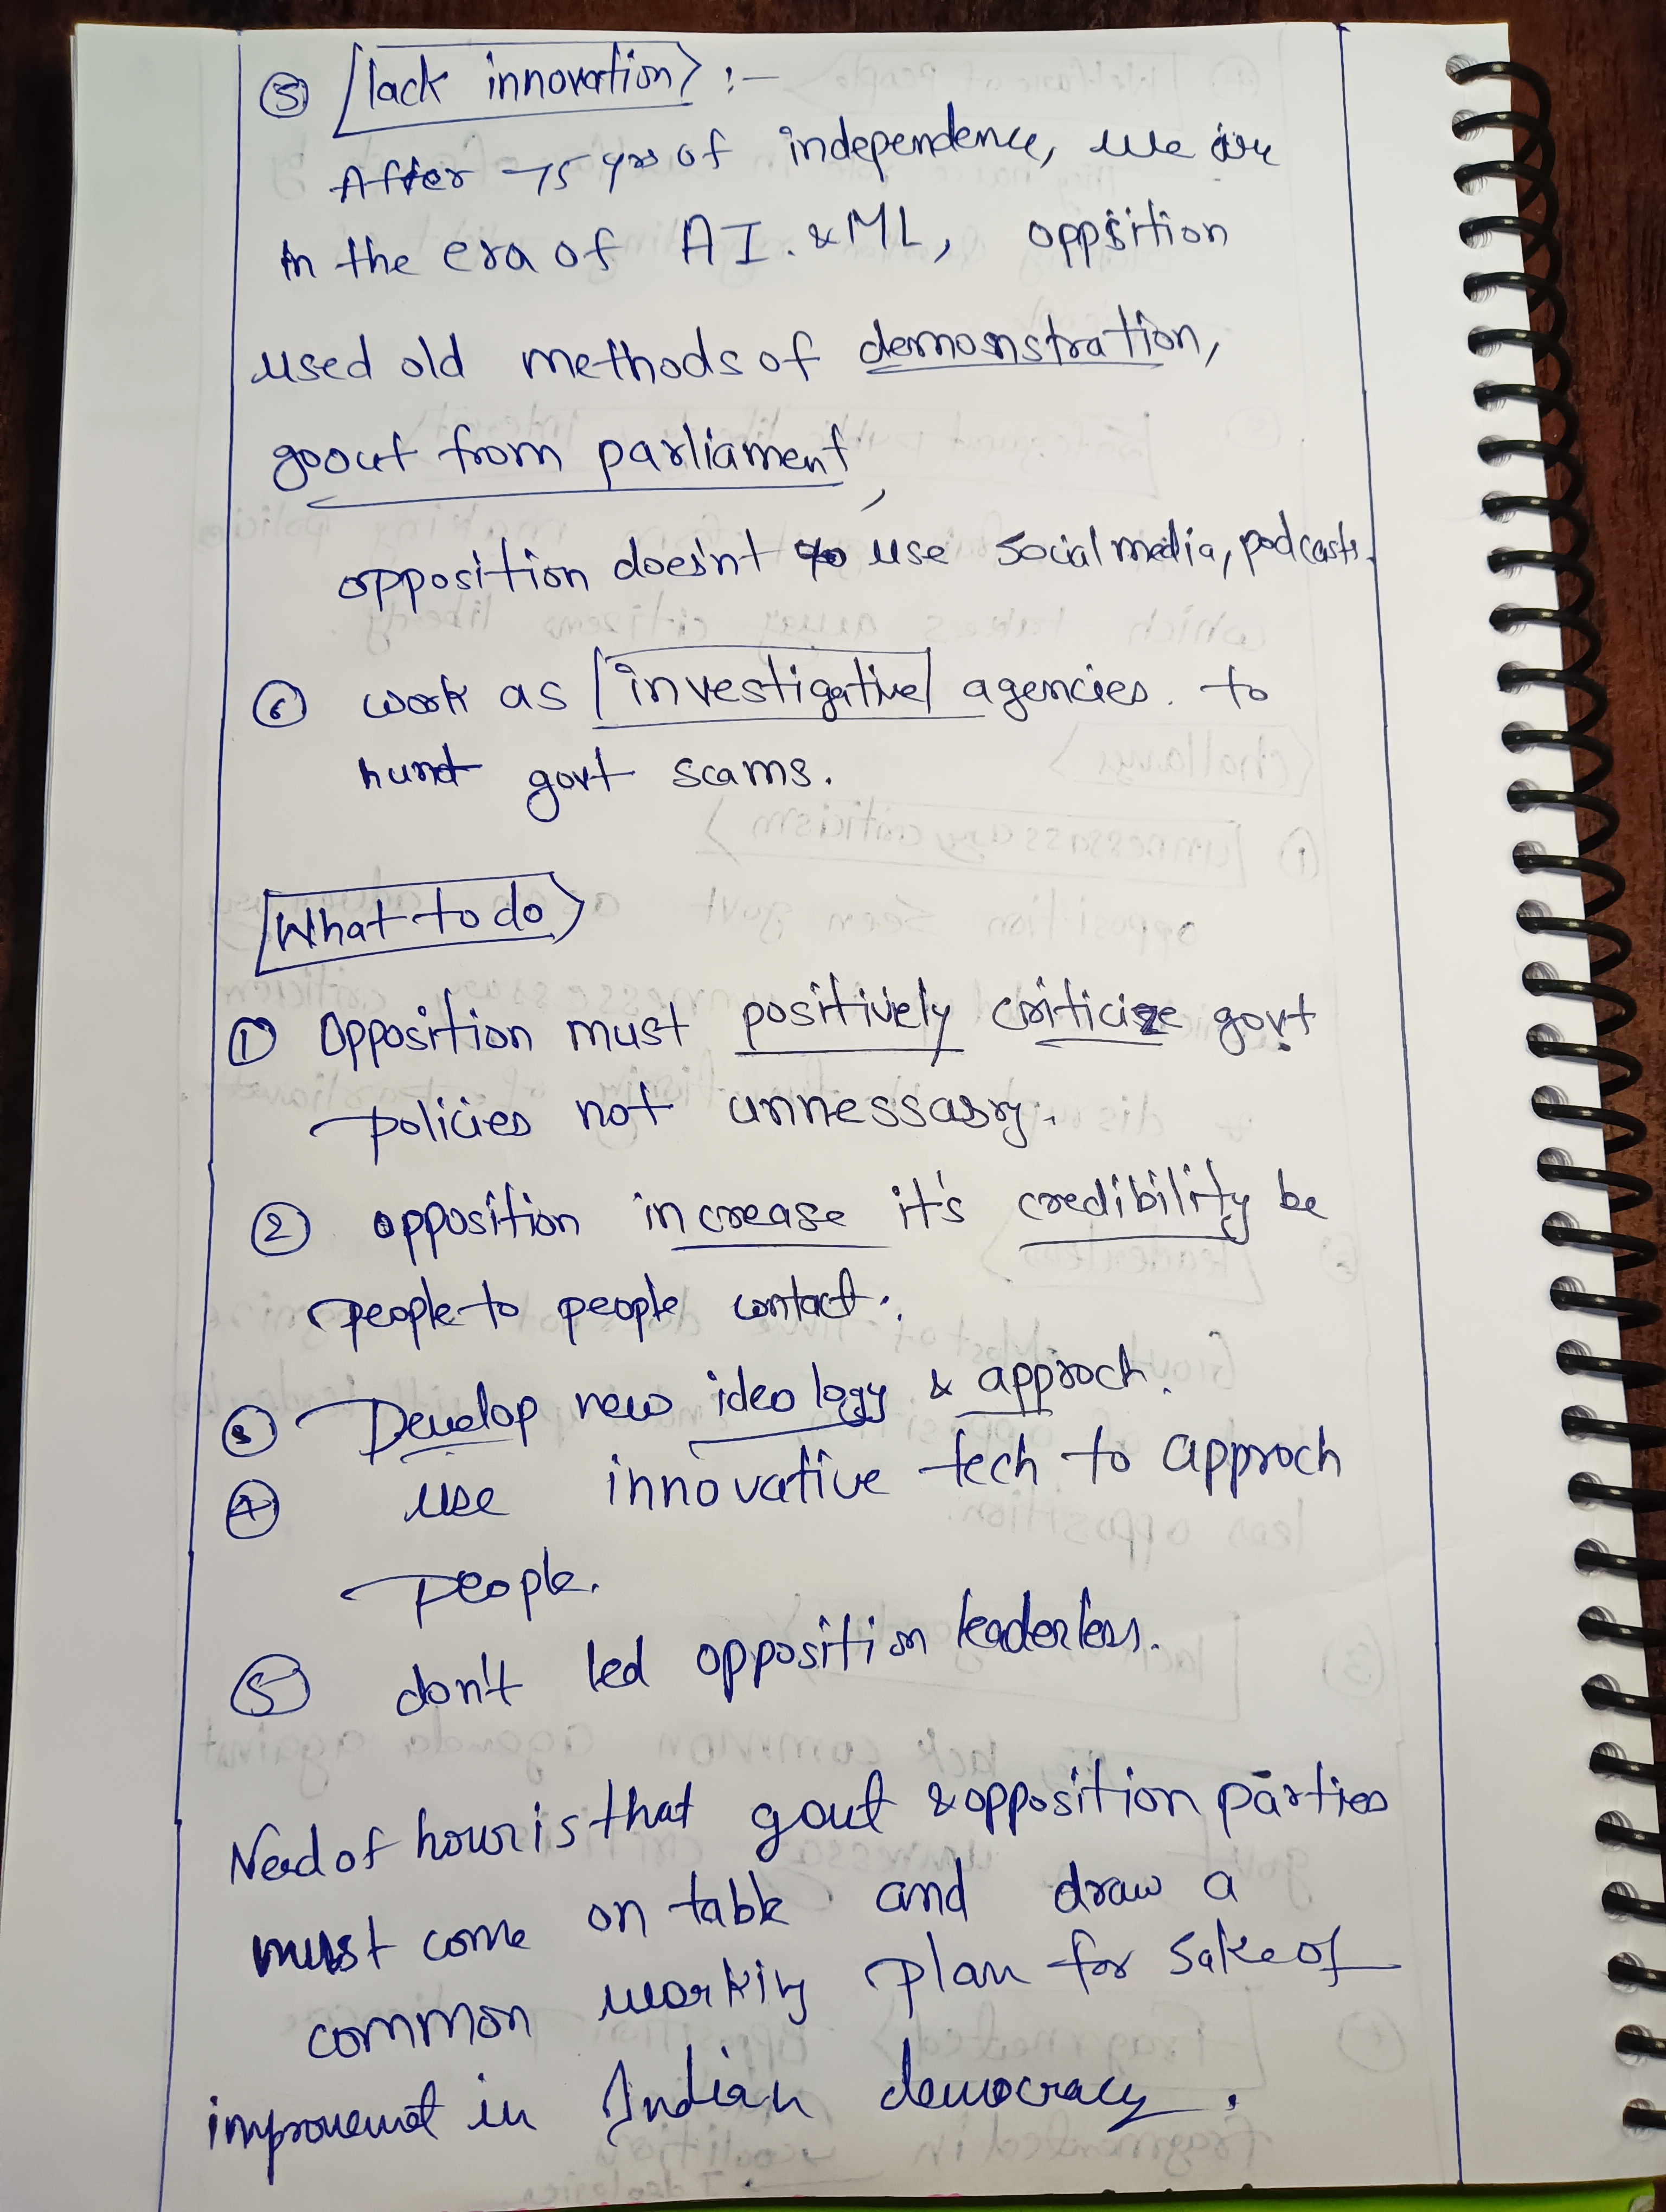 ⑤ lack innovation :-
After 75 yrs of independence, we are
in the era of AI. & ML, oppsition
used old methods of demonstration,
goout from parliament,
opposition doesn't use social media, podcasts.
⑥ work as investigative agencies. to
hunt govt scams.
What to do
① Opposition must positively criticize govt
policies not unnessasry.
② opposition increase it's credibility be
people to people contact.
③ Develop new ideology & approch.
④ use innovative tech to approch
people.
⑤ don't led opposition leaderless.
Need of hour is that gout & opposition parties
must come on table and draw a
common working plan for sake of
improvemet in Indian democracy.